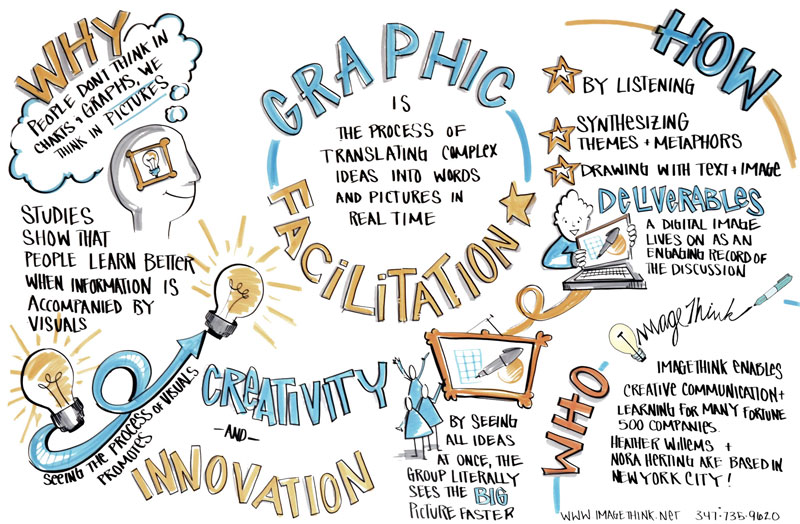 WHY
PEOPLE DON'T THINK IN
CHARTS + GRAPHS, WE
THINK IN PICTURES
STUDIES
SHOW THAT
PEOPLE LEARN BETTER
WHEN INFORMATION IS
ACCOMPANIED BY
VISUALS
GRAPHIC
FACILITATION
IS
THE PROCESS OF
TRANSLATING COMPLEX
IDEAS INTO WORDS
AND PICTURES IN
REAL TIME
HOW
BY LISTENING
SYNTHESIZING
THEMES + METAPHORS
DRAWING WITH TEXT + IMAGE
DELIVERABLES
A DIGITAL IMAGE
LIVES ON AS AN
ENGAGING RECORD OF
THE DISCUSSION
SEEING THE PROCESS OF VISUALS
PROMOTES
CREATIVITY
-AND-
INNOVATION
BY SEEING
ALL IDEAS
AT ONCE, THE
GROUP LITERALLY
SEES THE BIG
PICTURE FASTER
ImageThink
WHO
IMAGETHINK ENABLES
CREATIVE COMMUNICATION +
LEARNING FOR MANY FORTUNE
500 COMPANIES.
HEATHER WILLEMS +
NORA HERTING ARE BASED IN
NEW YORK CITY!
WWW.IMAGETHINK.NET 347-735-9620